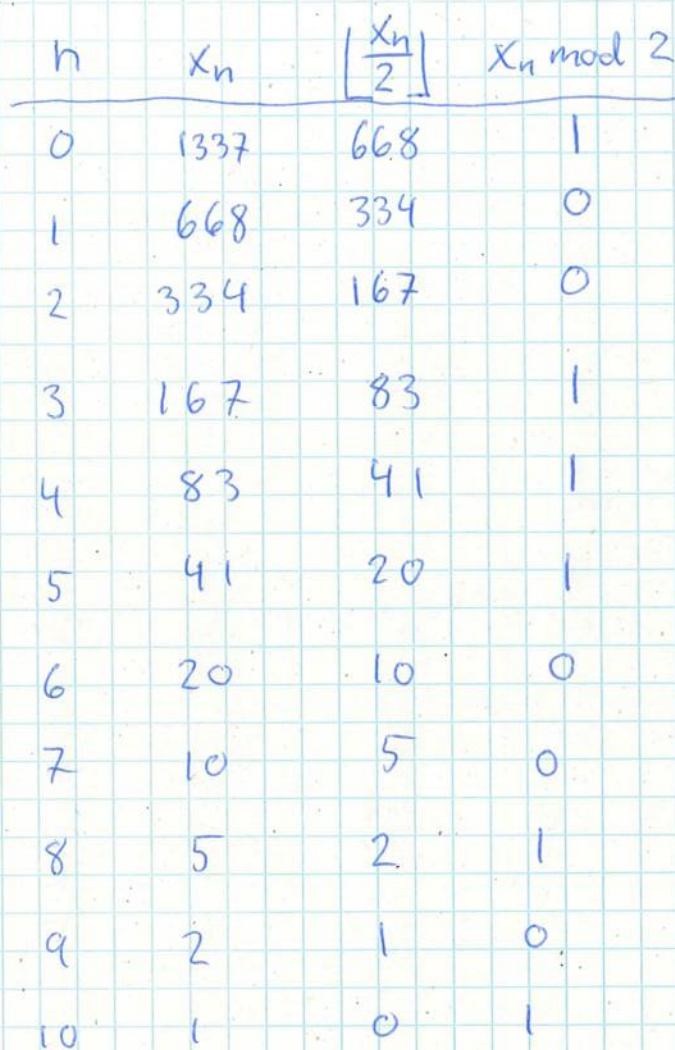 n xₙ ⌊xₙ/2⌋ xₙ mod 2
0 1337 668 1
1 668 334 0
2 334 167 0
3 167 83 1
4 83 41 1
5 41 20 1
6 20 10 0
7 10 5 0
8 5 2 1
9 2 1 0
10 1 0 1